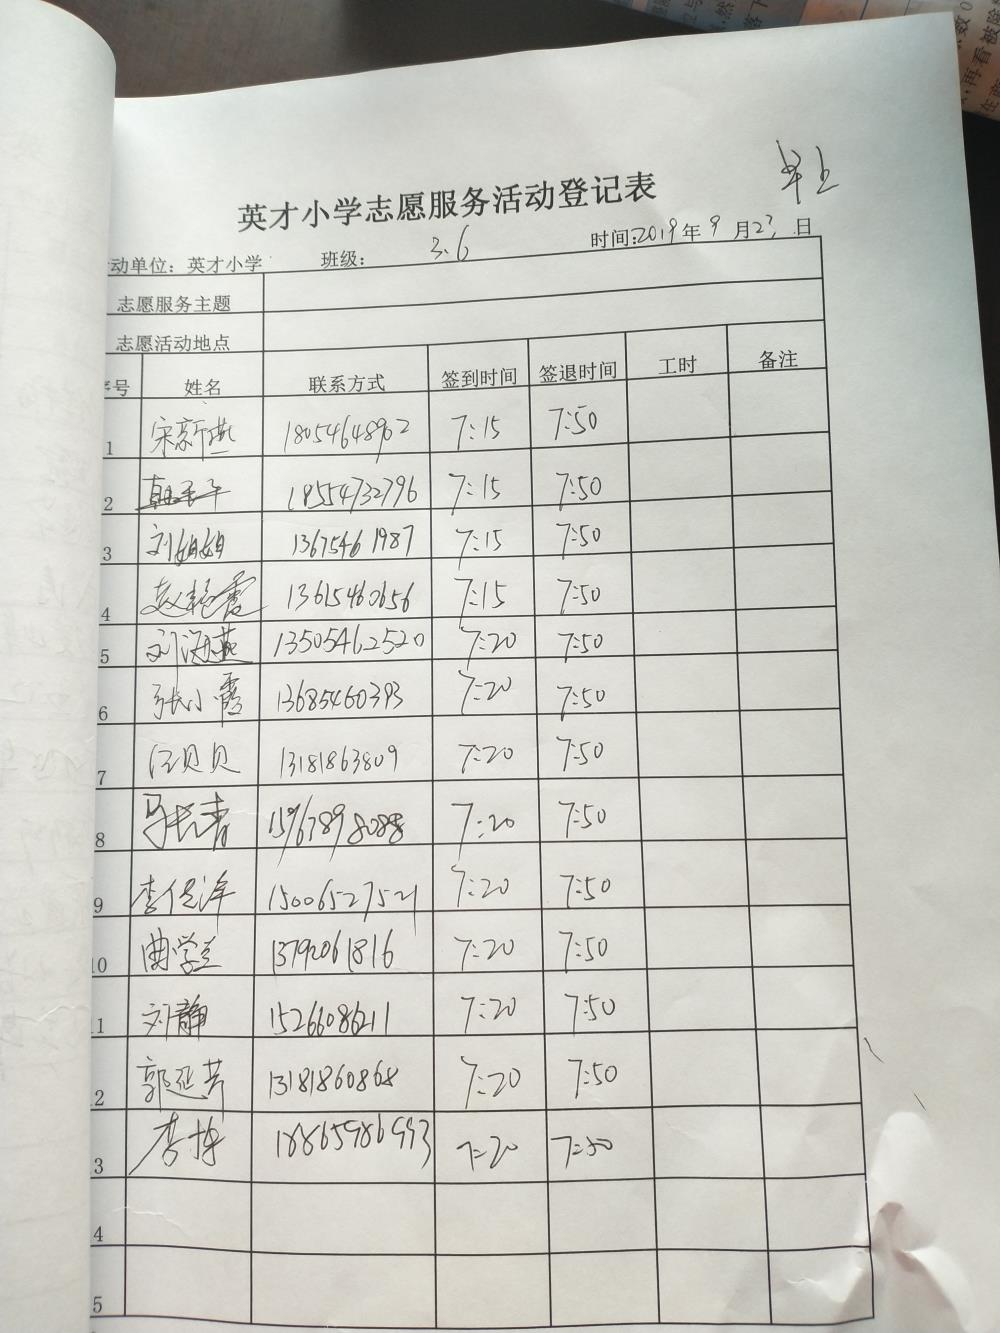 英才小学志愿服务活动登记表
动单位：英才小学 班级： 3.6 时间：2019年9月23日
志愿服务主题
志愿活动地点
号 姓名 联系方式 签到时间 签退时间 工时 备注
1 宋新燕 18054648962 7:15 7:50
2 18554732796 7:15 7:50
3 刘娟娟 13675461987 7:15 7:50
4 赵艳霞 13615460656 7:15 7:50
5 刘海燕 13505462520 7:20 7:50
6 张小霞 13685460393 7:20 7:50
7 汪贝贝 13181863809 7:20 7:50
8 马长青 15967898088 7:20 7:50
9 15006527521 7:20 7:50
10 曲学兰 13792061816 7:20 7:50
1 刘静 15266086211 7:20 7:50
2 郭延芳 13181860868 7:20 7:50
3 18865986993 7:20 7:50
4
5